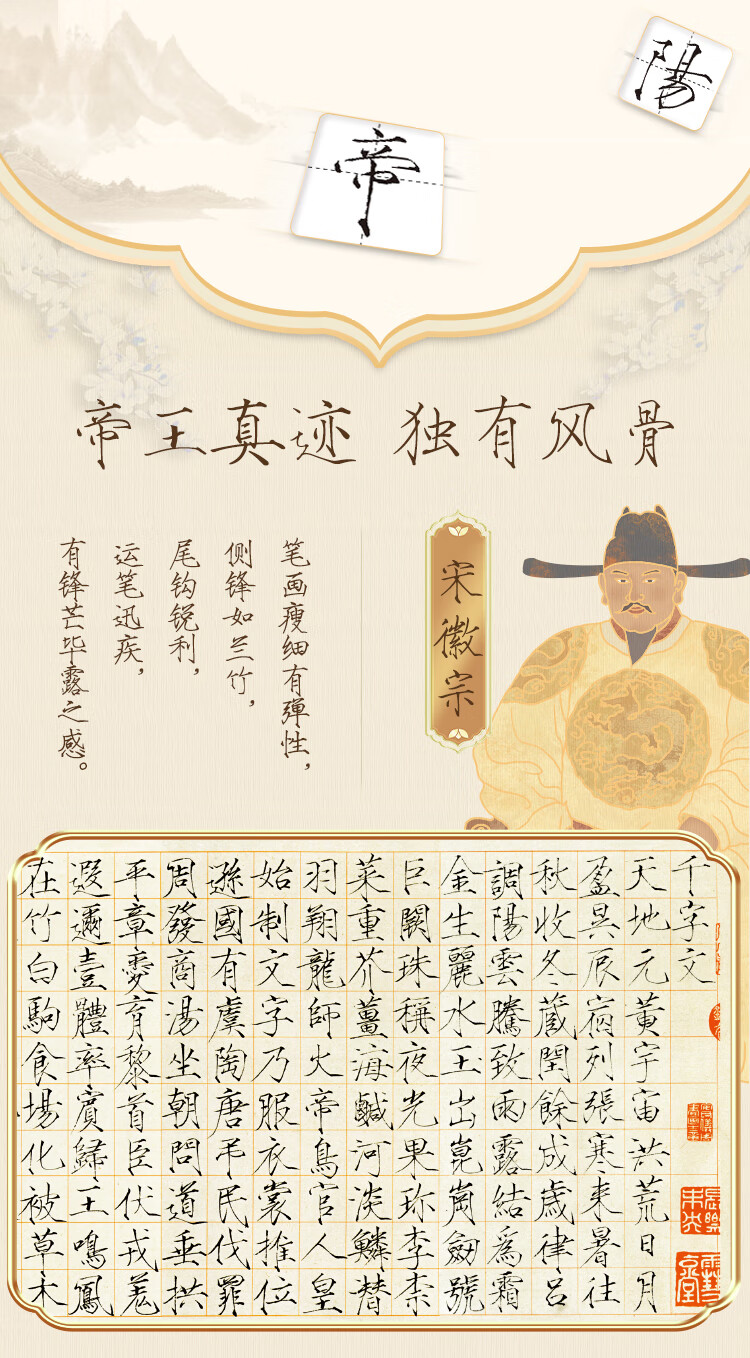 陽
帝
帝王真迹 独有风骨
宋徽宗
笔画瘦细有弹性，
侧锋如兰竹，
尾钩锐利，
运笔迅疾，
有锋芒毕露之感。
千字文
天地元黃宇宙洪荒日月
盈昃辰宿列張寒来暑往
秋收冬蔵閏餘成歳律吕
調陽雲騰致雨露結爲霜
金生麗水玉出崑崗劒號
巨闕珠稱夜光果珎李柰
菜重芥薑海鹹河淡鱗潜
羽翔龍師火帝鳥官人皇
始制文字乃服衣裳推位
遜國有虞陶唐弔民伐罪
周發商湯坐朝問道垂拱
平章愛育黎首臣伏戎羌
遐邇壹體率賓歸王鳴鳳
在竹白駒食場化被草木